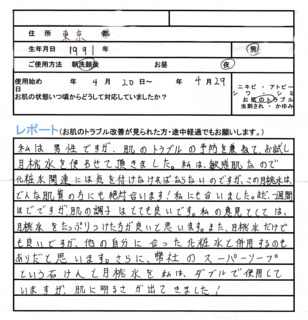 住 所 東京 都
生年月日 1991年 男
ご使用方法 朝洗顔後 お昼 夜
使用始め 年 4月20日〜 年 4月29日
お肌の状態いつ頃からどうして対応していましたか?
ニキビ・アトピー
シワ・シミ
お肌のトラブル
虫刺され・かゆみ
レポート(お肌のトラブル改善が見られた方・途中経過でもお願いします。)
私は男性ですが、肌のトラブルの予防を兼ねて、お試し
月桃水を使わせて頂きました。私は、敏感肌なので
化粧水関連には気を付けなければならないのですが、この月桃水は、
どんな肌質の方にも絶対合います!私にも合いました。まだ、一週間
ほどですが、肌の調子はとても良いです。私の意見としては、
月桃水をたっぷりつけた方が良いと思います。また、月桃水だけで
も良いですが、他の自分に合った化粧水と併用するのも
ありだと思います。さらに、弊社のスーパーソープ
という石けんと月桃水を私は、ダブルで使用して
いますが、肌に明るさが出てきました!